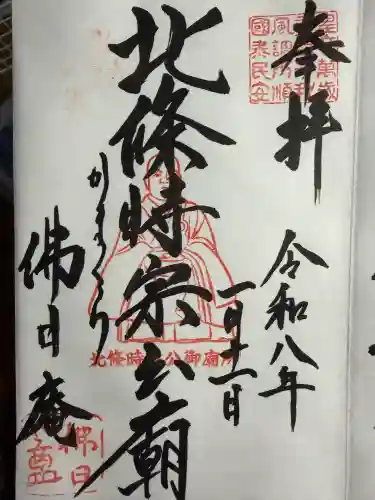 奉拝
皇帝萬歳
風調雨順
國泰民安
令和八年
一月十一日
北條時宗公廟
北條時宗公御廟所
かまくら
佛日庵
佛日